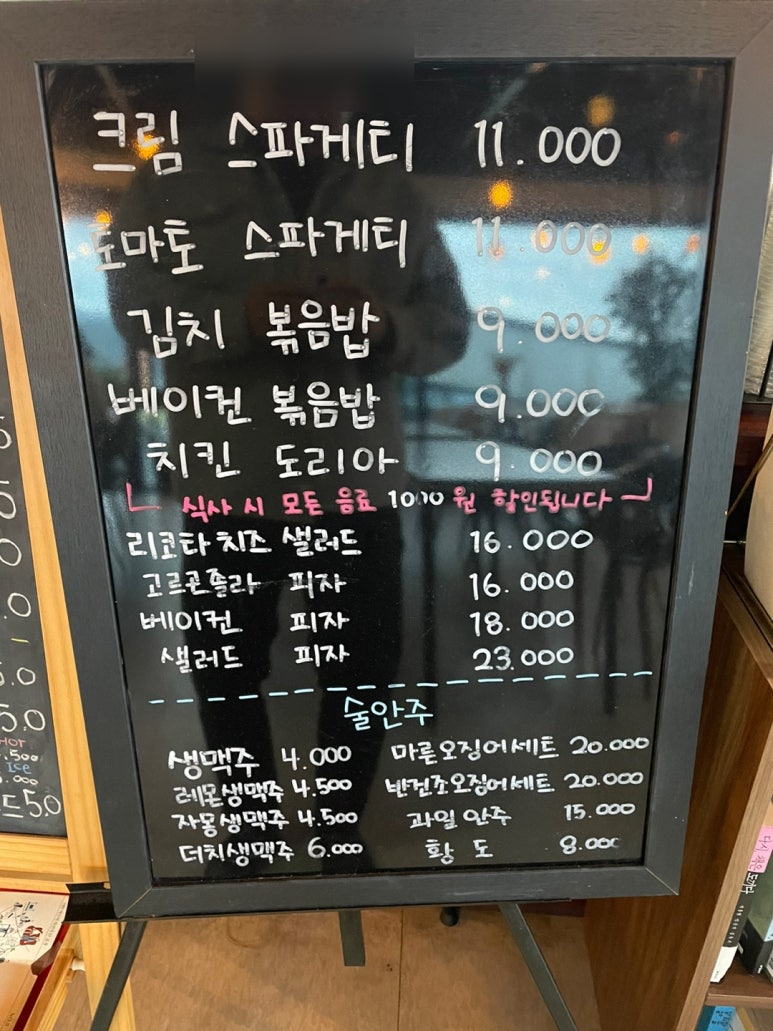 크림 스파게티 11.000
토마토 스파게티 11.000
김치 볶음밥 9.000
베이컨 볶음밥 9.000
치킨 도리아 9.000
식사 시 모든 음료 1000 원 할인됩니다
리코타 치즈 샐러드 16.000
고르곤졸라 피자 16.000
베이컨 피자 18.000
샐러드 피자 23.000
술안주
생맥주 4.000 마른오징어세트 20.000
레몬생맥주 4.500 반건조오징어세트 20.000
자몽생맥주 4.500 과일 안주 15.000
더치생맥주 6.000 황 도 8.000
HOT
.500
ICE
.000
드 5.0